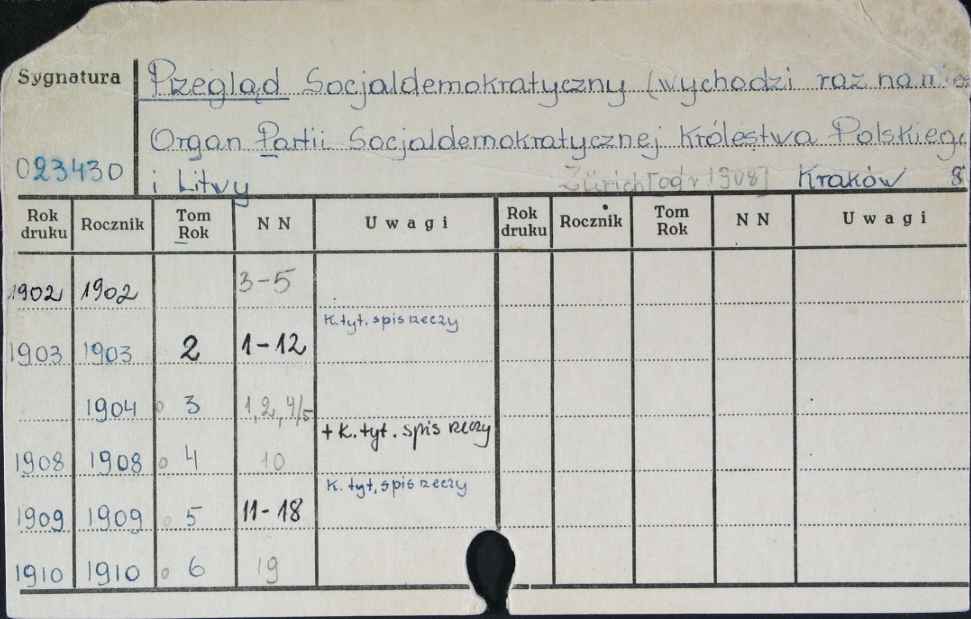 Sygnatura Przegląd Socjaldemokratyczny (wychodzi raz na mie
Organ Partii Socjaldemokratycznej Królestwa Polskiego
023430 i Litwy Zürich [od r 1908] Kraków 8
Rok druku Rocznik Tom Rok NN Uwagi Rok druku Rocznik Tom Rok NN Uwagi
1902 1902 3-5
K. tyt. spis rzeczy
1903 1903 2 1-12
1904 3 1, 2, 4/5
+ K. tyt. spis rzeczy
1908 1908 4 10
K. tyt, spis rzeczy
1909 1909 5 11-18
1910 1910 6 19